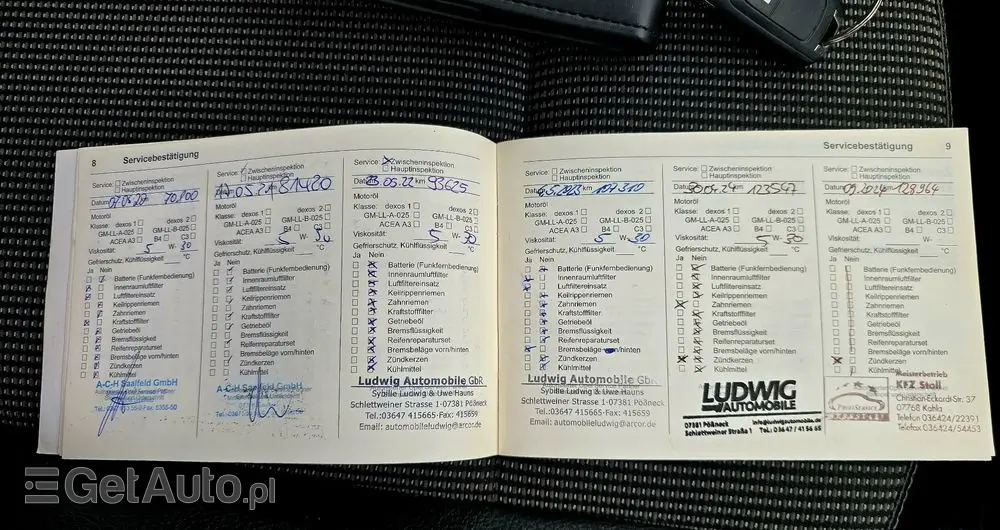 8 Servicebestätigung
Service: Zwischeninspektion
Hauptinspektion
Datum 70.100
Motoröl
Klasse: dexos 1 dexos 2
GM-LL-A-025 GM-LL-B-025
ACEA A3 B4 C3
Viskosität: 5 W- 30
Gefrierschutz, Kühlflüssigkeit °C
Ja Nein
Batterie (Funkfernbedienung)
Innenraumluftfilter
Luftfiltereinsatz
Keilrippenriemen
Zahnriemen
Kraftstofffilter
Getriebeöl
Bremsflüssigkeit
Reifenreparaturset
Bremsbeläge vorn/hinten
Zündkerzen
Kühlmittel
A-C-H Saalfeld GmbH
Service: Zwischeninspektion
Hauptinspektion
05.21 81420
Motoröl
Klasse: dexos 1 dexos 2
GM-LL-A-025 GM-LL-B-025
ACEA A3 B4 C3
Viskosität: 5 W- 30
Gefrierschutz, Kühlflüssigkeit °C
Ja Nein
Batterie (Funkfernbedienung)
Innenraumluftfilter
Luftfiltereinsatz
Keilrippenriemen
Zahnriemen
Kraftstofffilter
Getriebeöl
Bremsflüssigkeit
Reifenreparaturset
Bremsbeläge vorn/hinten
Zündkerzen
Kühlmittel
A-C-H Saalfeld GmbH
Service: Zwischeninspektion
Hauptinspektion
05.22 km 93625
Motoröl
Klasse: dexos 1 dexos 2
GM-LL-A-025 GM-LL-B-025
ACEA A3 B4 C3
Viskosität: 5 W- 30
Gefrierschutz, Kühlflüssigkeit °C
Ja Nein
Batterie (Funkfernbedienung)
Innenraumluftfilter
Luftfiltereinsatz
Keilrippenriemen
Zahnriemen
Kraftstofffilter
Getriebeöl
Bremsflüssigkeit
Reifenreparaturset
Bremsbeläge vorn/hinten
Zündkerzen
Kühlmittel
Ludwig Automobile GbR
Sybille Ludwig & Uwe Hauns
Schlettweiner Strasse 1-07381 Pößneck
Tel.:03647 415665-Fax: 415659
Email: automobileludwig@arcor.de
Servicebestätigung 9
Service: Zwischeninspektion
Hauptinspektion
104310
Motoröl
Klasse: dexos 1 dexos 2
GM-LL-A-025 GM-LL-B-025
ACEA A3 B4 C3
Viskosität: 5 W- 30
Gefrierschutz, Kühlflüssigkeit °C
Ja Nein
Batterie (Funkfernbedienung)
Innenraumluftfilter
Luftfiltereinsatz
Keilrippenriemen
Zahnriemen
Kraftstofffilter
Getriebeöl
Bremsflüssigkeit
Reifenreparaturset
Bremsbeläge vorn/hinten
Zündkerzen
Kühlmittel
Ludwig Automobile GbR
Sybille Ludwig & Uwe Hauns
Schlettweiner Strasse 1-07381 Pößneck
Tel.:03647 415665-Fax: 415659
Email: automobileludwig@arcor.de
Service: Zwischeninspektion
Hauptinspektion
km 123547
Motoröl
Klasse: dexos 1 dexos 2
GM-LL-A-025 GM-LL-B-025
ACEA A3 B4 C3
Viskosität: 5 W- 30
Gefrierschutz, Kühlflüssigkeit °C
Ja Nein
Batterie (Funkfernbedienung)
Innenraumluftfilter
Luftfiltereinsatz
Keilrippenriemen
Zahnriemen
Kraftstofffilter
Getriebeöl
Bremsflüssigkeit
Reifenreparaturset
Bremsbeläge vorn/hinten
Zündkerzen
Kühlmittel
LUDWIG
AUTOMOBILE
07381 Pößneck info@ludwigautomobile.de
Schlettweiner Straße 1 Tel.: 03647 / 41 56 65
Service: Zwischeninspektion
Hauptinspektion
09.2024 128964
Motoröl
Klasse: dexos 1 dexos 2
GM-LL-A-025 GM-LL-B-025
ACEA A3 B4 C3
Viskosität: W-
Gefrierschutz, Kühlflüssigkeit °C
Ja Nein
Batterie (Funkfernbedienung)
Innenraumluftfilter
Luftfiltereinsatz
Keilrippenriemen
Zahnriemen
Kraftstofffilter
Getriebeöl
Bremsflüssigkeit
Reifenreparaturset
Bremsbeläge vorn/hinten
Zündkerzen
Kühlmittel
Meisterbetrieb
KFZ Stoll
Christian-Eckardt-Str. 37
07768 Kahla
Telefon 036424/22391
Telefax 036424/54453
GetAuto.pl